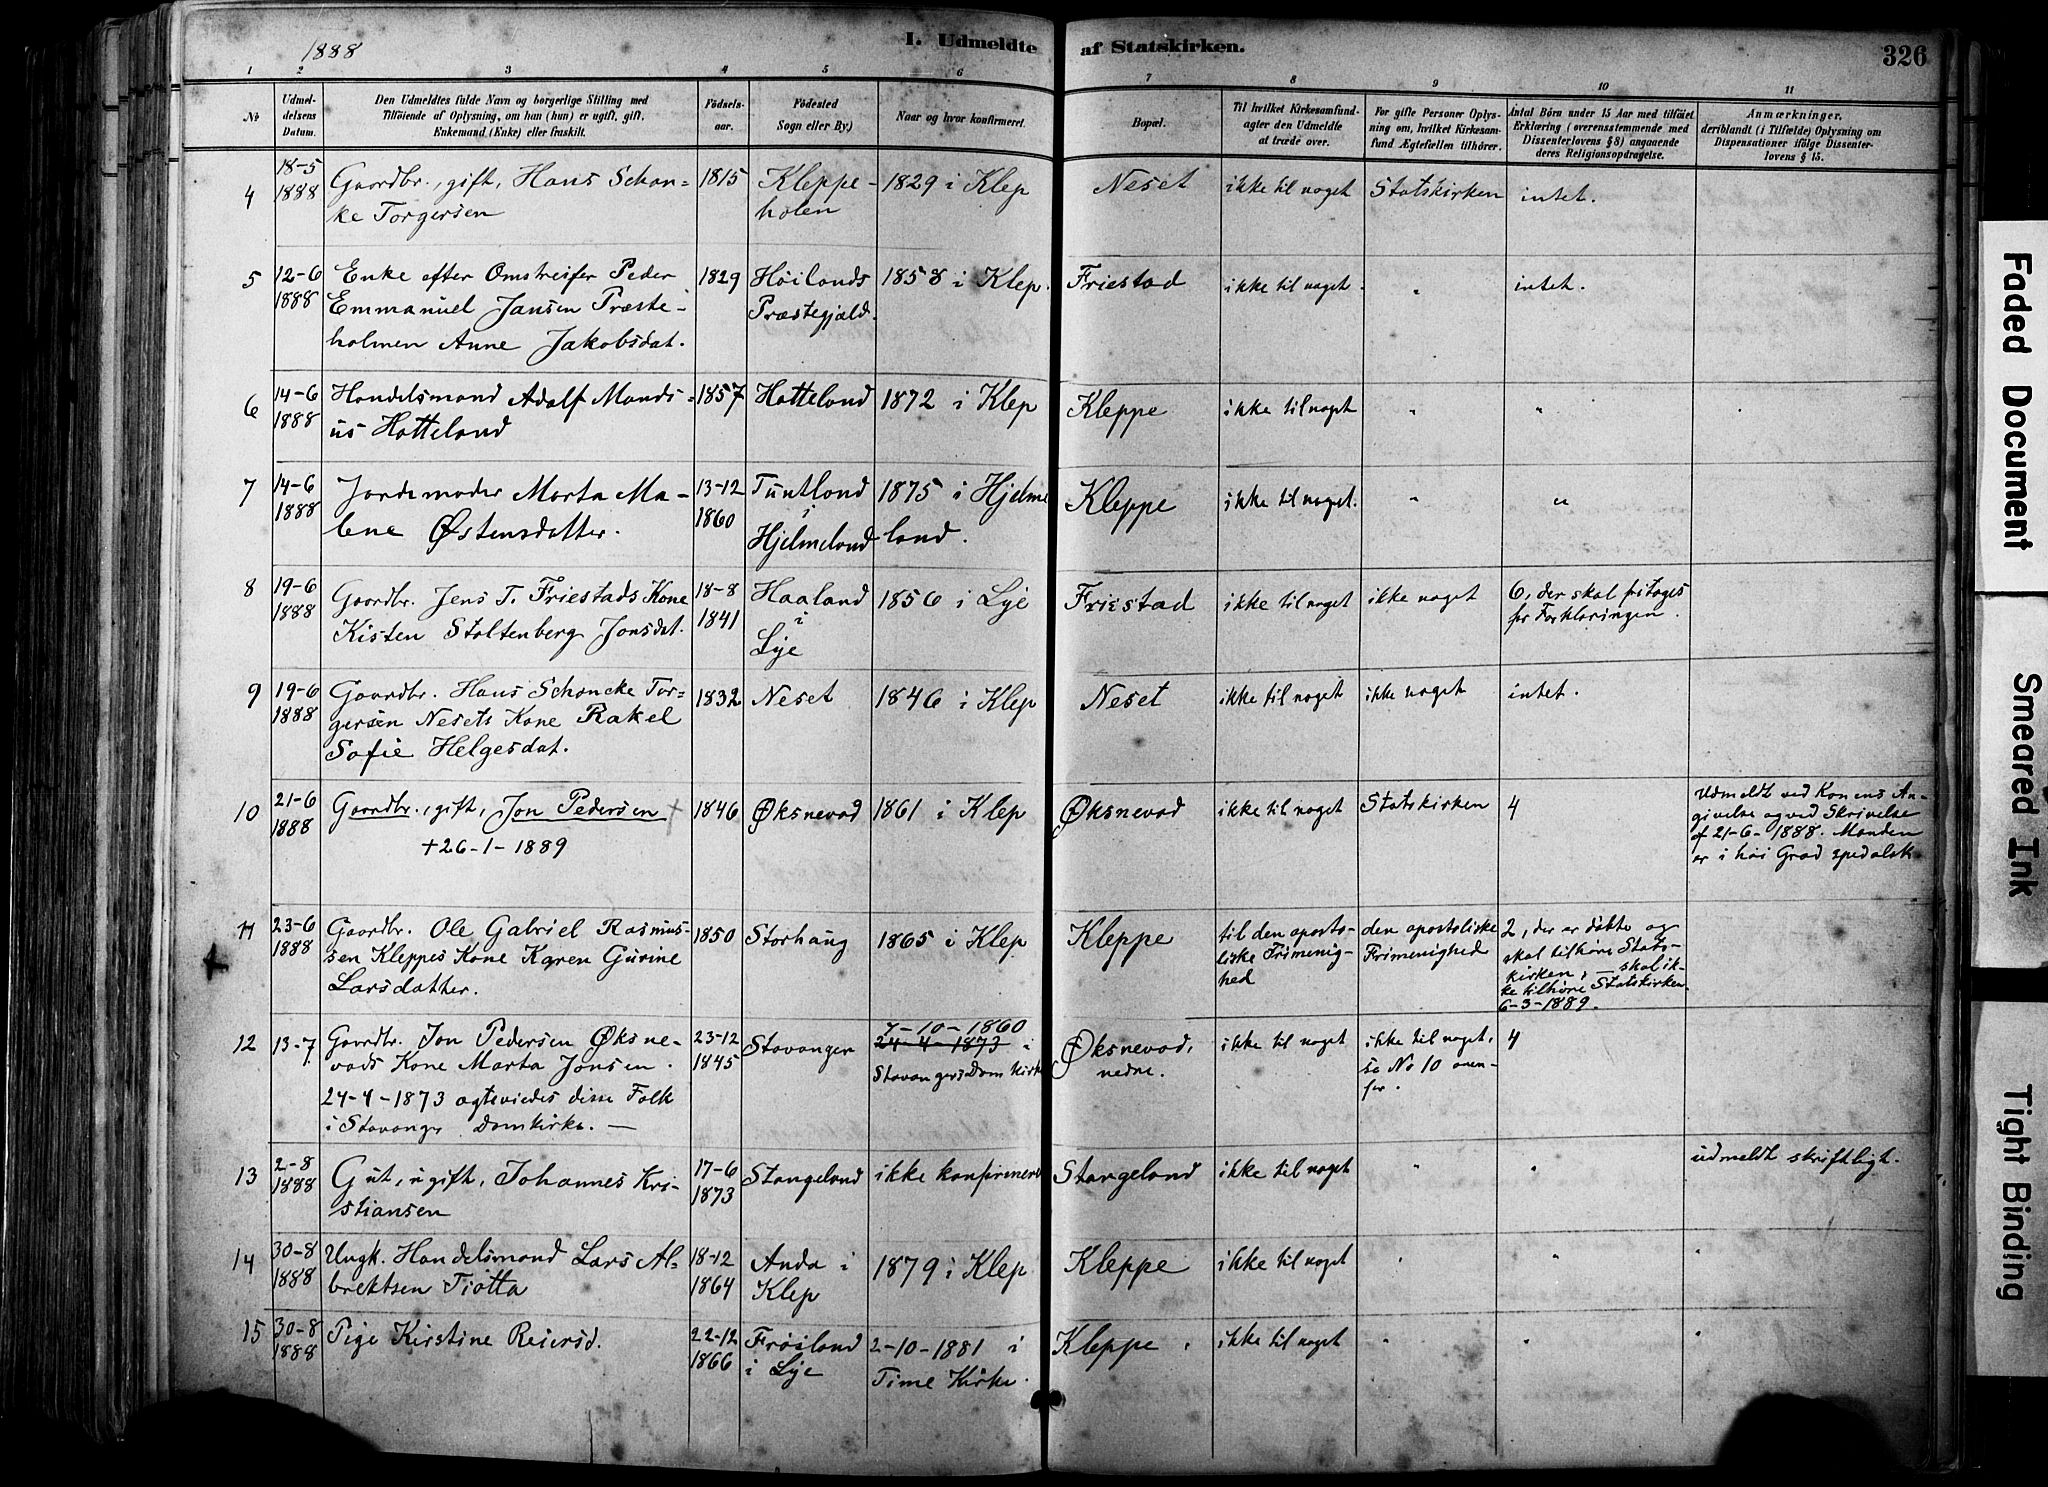 1888
I. Udmeldte af Statskirken.
326
1 2 3 4 5 6 7 8 9 10 11
No
Udmel-
delsens
Datum.
Den Udmeldtes fulde Navn og borgerlige Stilling med
Tilföiende af Oplysning, om han (hun) er ugift, gift,
Enkemand (Enke) eller fraskilt.
Födsels-
aar.
Födested
Sogn eller By)
Naar og hvor konfirmeret.
Bopæl.
Til hvilket Kirkesamfund-
agter den Udmeldte
at træde over.
For gifte Personer Oplys-
ning om, hvilket Kirkesam-
fund Ægtefællen tilhörer.
Antal Börn under 15 Aar med tilföiet
Erklæring (overensstemmende med
Dissenterlovens § 8) angaaende
deres Religionsopdragelse.
Anmærkninger,
deriblandt (i Tilfælde) Oplysning om
Dispensationer ifölge Dissenter-
lovens § 15.
4
18-5
1888
Gaardbr., gift, Hans Schan-
ke Torgersen
1815
Kleppe-
holen
1829 i Klep
Neset
ikke til noget
Statskirken
intet.
5
12-6
1888
Enke efter Omstreifer Peder
Emmanuel Jansen Præste-
holmen Anne Jakobsdat.
1829
Höilands
Præstegjæld.
1858 i Klep.
Friestad
ikke til noget.
"
intet.
6
14-6
1888
Handelsmand Adolf Mands-
us Hatteland
1857
Hatteland
1872 i Klep
Kleppe
ikke til noget
"
"
7
14-6
1888
Jordemoder Marta Ma-
lene Østensdatter.
13-12
1860
Tuntland
i
Hjelmeland
1875 i Hjelme
land.
Kleppe
ikke til noget.
"
"
8
19-6
1888
Gaardbr. Jens T. Friestads Kone
Kisten Stoltenberg Jonsdat.
18-8
1841
Haaland
i
Lye
1856 i Lye
Friestad
ikke til noget
ikke noget
6, der skal fritages
for Forklaringen.
9
19-6
1888
Gaardbr. Hans Schancke Tor-
gersen Nesets Kone Rakel
Sofie Helgesdat.
1832
Neset
1846 i Klep
Neset
ikke til noget
ikke noget
intet.
10
21-6
1888
Gaardbr., gift, Jon Pedersen +
+ 26-1-1889
1846
Øksnevad
1861 i Klep
Øksnevad
ikke til noget
Statskirken
4
Udmeldt ved Konens An-
givelse og ved Skrivelse
af 21-6-1888. Manden
er i höi Grad spedalsk
11
23-6
1888
Gaardbr. Ole Gabriel Rasmus-
sen Kleppes Kone Karen Gurine
Larsdatter.
1850
Storhaug
1865 i Klep
Kleppe
til den aposto-
liske Frimenig-
hed
den apostoliske
Frimenighed
2, der er døbte og
skal tilhøre Stats-
kirken, — skal ik-
ke tilhøre Statskirken
6-3-1889.
12
13-7
Gaardbr. Jon Pedersen Øksne-
vads Kone Marta Jonsen.
24-4-1873 ægteviedes disse Folk
i Stavanger Domkirke. —
23-12
1845
Stavanger
7-10-1860
24-4-1873 i
Stavangers Dom Kirk
Øksnevad,
nedre.
ikke til noget
ikke til noget,
se No 10 oven-
for.
4
13
2-8
1888
Gut, ugift, Johannes Kri-
stiansen
17-6
1873
Stangeland
ikke konfirmeret
Stangeland
ikke til noget
"
"
udmeldt skriftligt.
14
30-8
1888
Ungk. Handelsmand Lars Al-
brektsen Tjøtta
18-12
1864
Anda i
Klep
1879 i Klep
Kleppe
ikke til noget
"
"
"
15
30-8
1888
Pige Kirstine Reiersd.
22-12
1866
Frøiland
i Lye
2-10-1881 i
Time Kirke.
Kleppe.
ikke til noget
"
"
"
Faded Document
Smeared Ink
Tight Binding